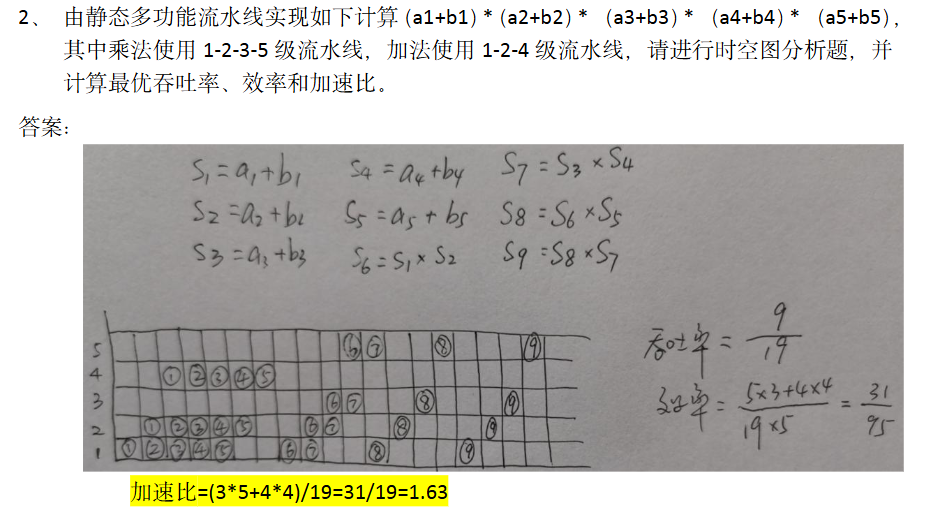 2、 由静态多功能流水线实现如下计算(a1+b1)*(a2+b2)* (a3+b3)* (a4+b4)* (a5+b5),
其中乘法使用 1-2-3-5 级流水线，加法使用 1-2-4 级流水线，请进行时空图分析题，并
计算最优吞吐率、效率和加速比。
答案：
S₁=a₁+b₁ S4=a₄+b4 S7=S₃×S4
S2=a₂+b₂ S5=a5+b5 S8=S6×S5
S3=a₃+b3 S6=S₁×S₂ S9=S8×S7
5 ⑥ ⑦ ⑧ ⑨
4 ① ② ③ ④ ⑤
3 ⑥ ⑦ ⑧ ⑨
2 ① ② ③ ④ ⑤ ⑥ ⑦ ⑧ ⑨
1 ① ② ③ ④ ⑤ ⑥ ⑦ ⑧ ⑨
吞吐率=9/19
效率=5×3+4×4/19×5=31/95
加速比=(3*5+4*4)/19=31/19=1.63